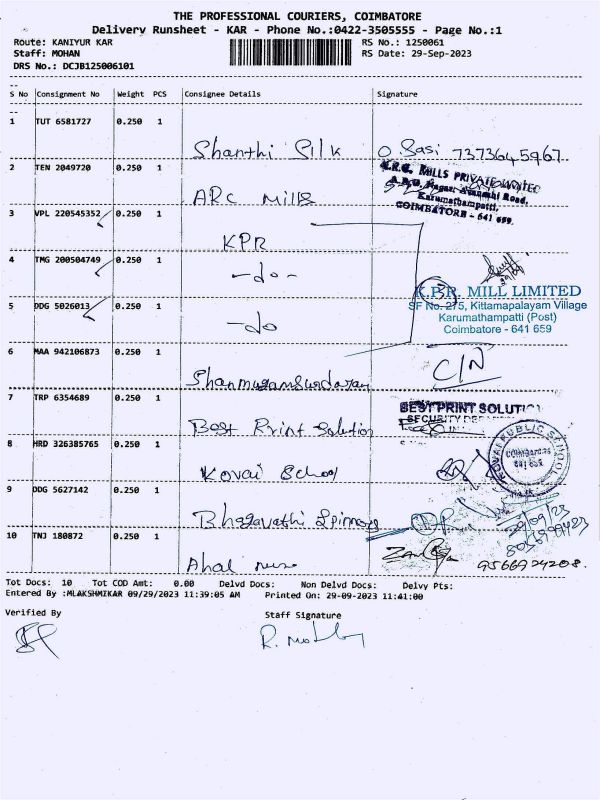 THE PROFESSIONAL COURIERS, COIMBATORE
Delivery Runsheet - KAR - Phone No.:0422-3505555 - Page No.:1
Route: KANIYUR KAR RS No.: 1250061
Staff: MOHAN RS Date: 29-Sep-2023
DRS No.: DCJB125006101
S No Consignment No Weight PCS Consignee Details Signature
1 TUT 6581727 0.250 1
Shanthi Silk Sasi 7373645967
2 TEN 2049720 0.250 1
ARC Mills
MILLS PRIVATE LIMITED
Karumathampatti,
COIMBATORE - 641 659.
3 VPL 220545352 0.250 1
KPR
4 TMG 200504749 0.250 1
-do-
K.P.R. MILL LIMITED
SF No. 275, Kittamapalayam Village
5 DDG 5026013 0.250 1
Karumathampatti (Post)
Coimbatore - 641 659
-do
6 MAA 942106873 0.250 1
Shanmugamsundaram C/N
7 TRP 6354689 0.250 1
BEST PRINT SOLUTI
Best Print Solution
8 HRD 326385765 0.250 1
Kovai School
KOVAI PUBLIC SCHOOL
COIMBATORE
641 659
9 DDG 5627142 0.250 1
Bhagavathi Spinners
29/09/23
10 TNJ 180872 0.250 1
9566924208.
Tot Docs: 10 Tot COD Amt: 0.00 Delvd Docs: Non Delvd Docs: Delvy Pts:
Entered By :MLAKSHMIKAR 09/29/2023 11:39:05 AM Printed On: 29-09-2023 11:41:00
Verified By Staff Signature